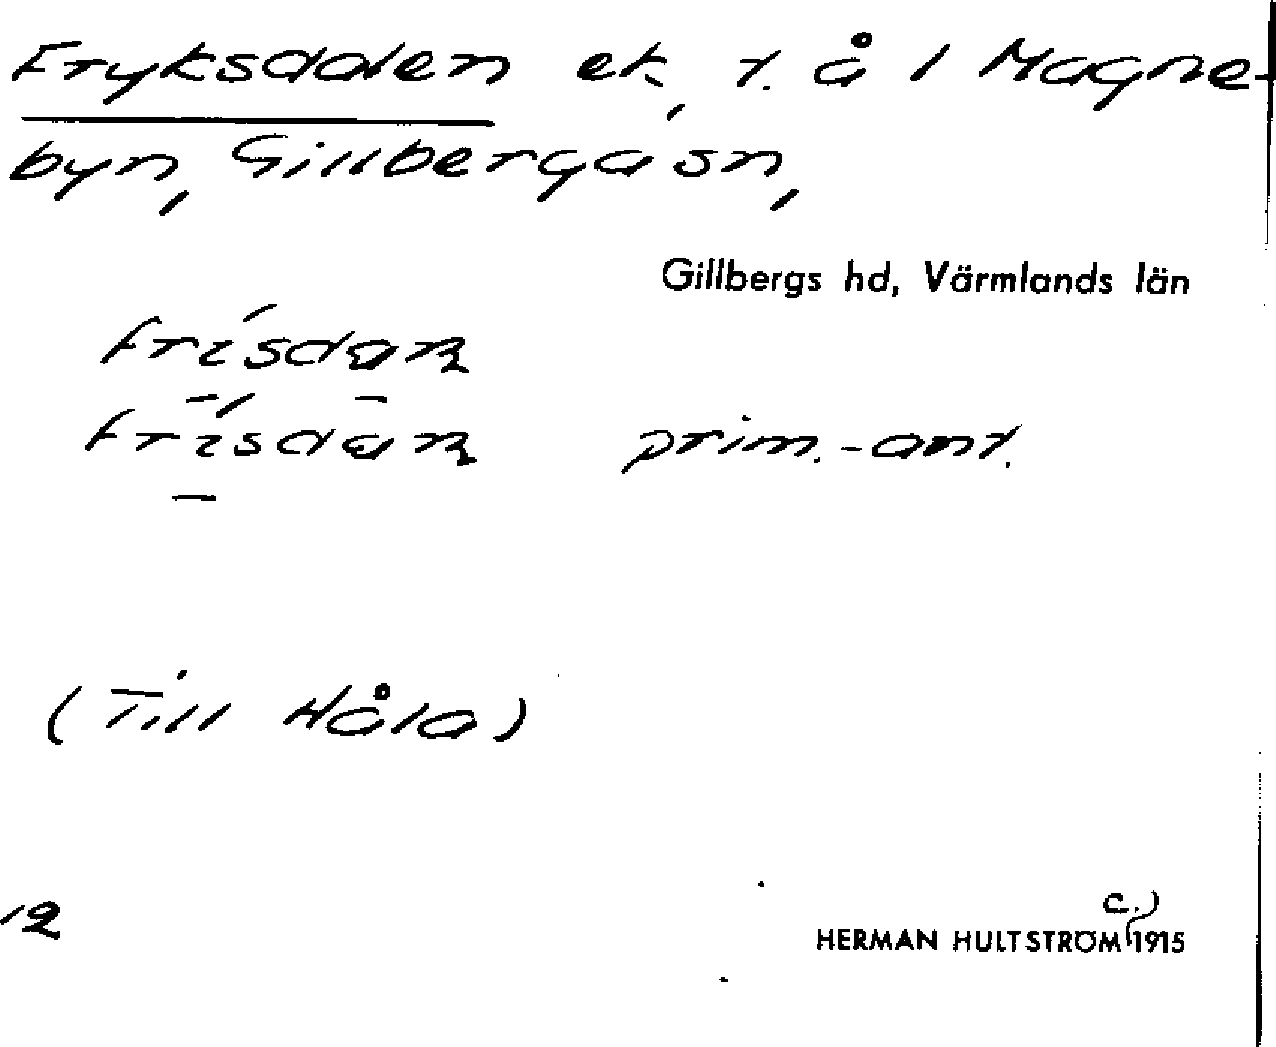 Fryksdalen ek, t. å i Magne-
byn, Gillberga sn,
Gillbergs hd, Värmlands län
prim.-ant.
(Till Håla)
12
c.)
HERMAN HULTSTRÖM 1915